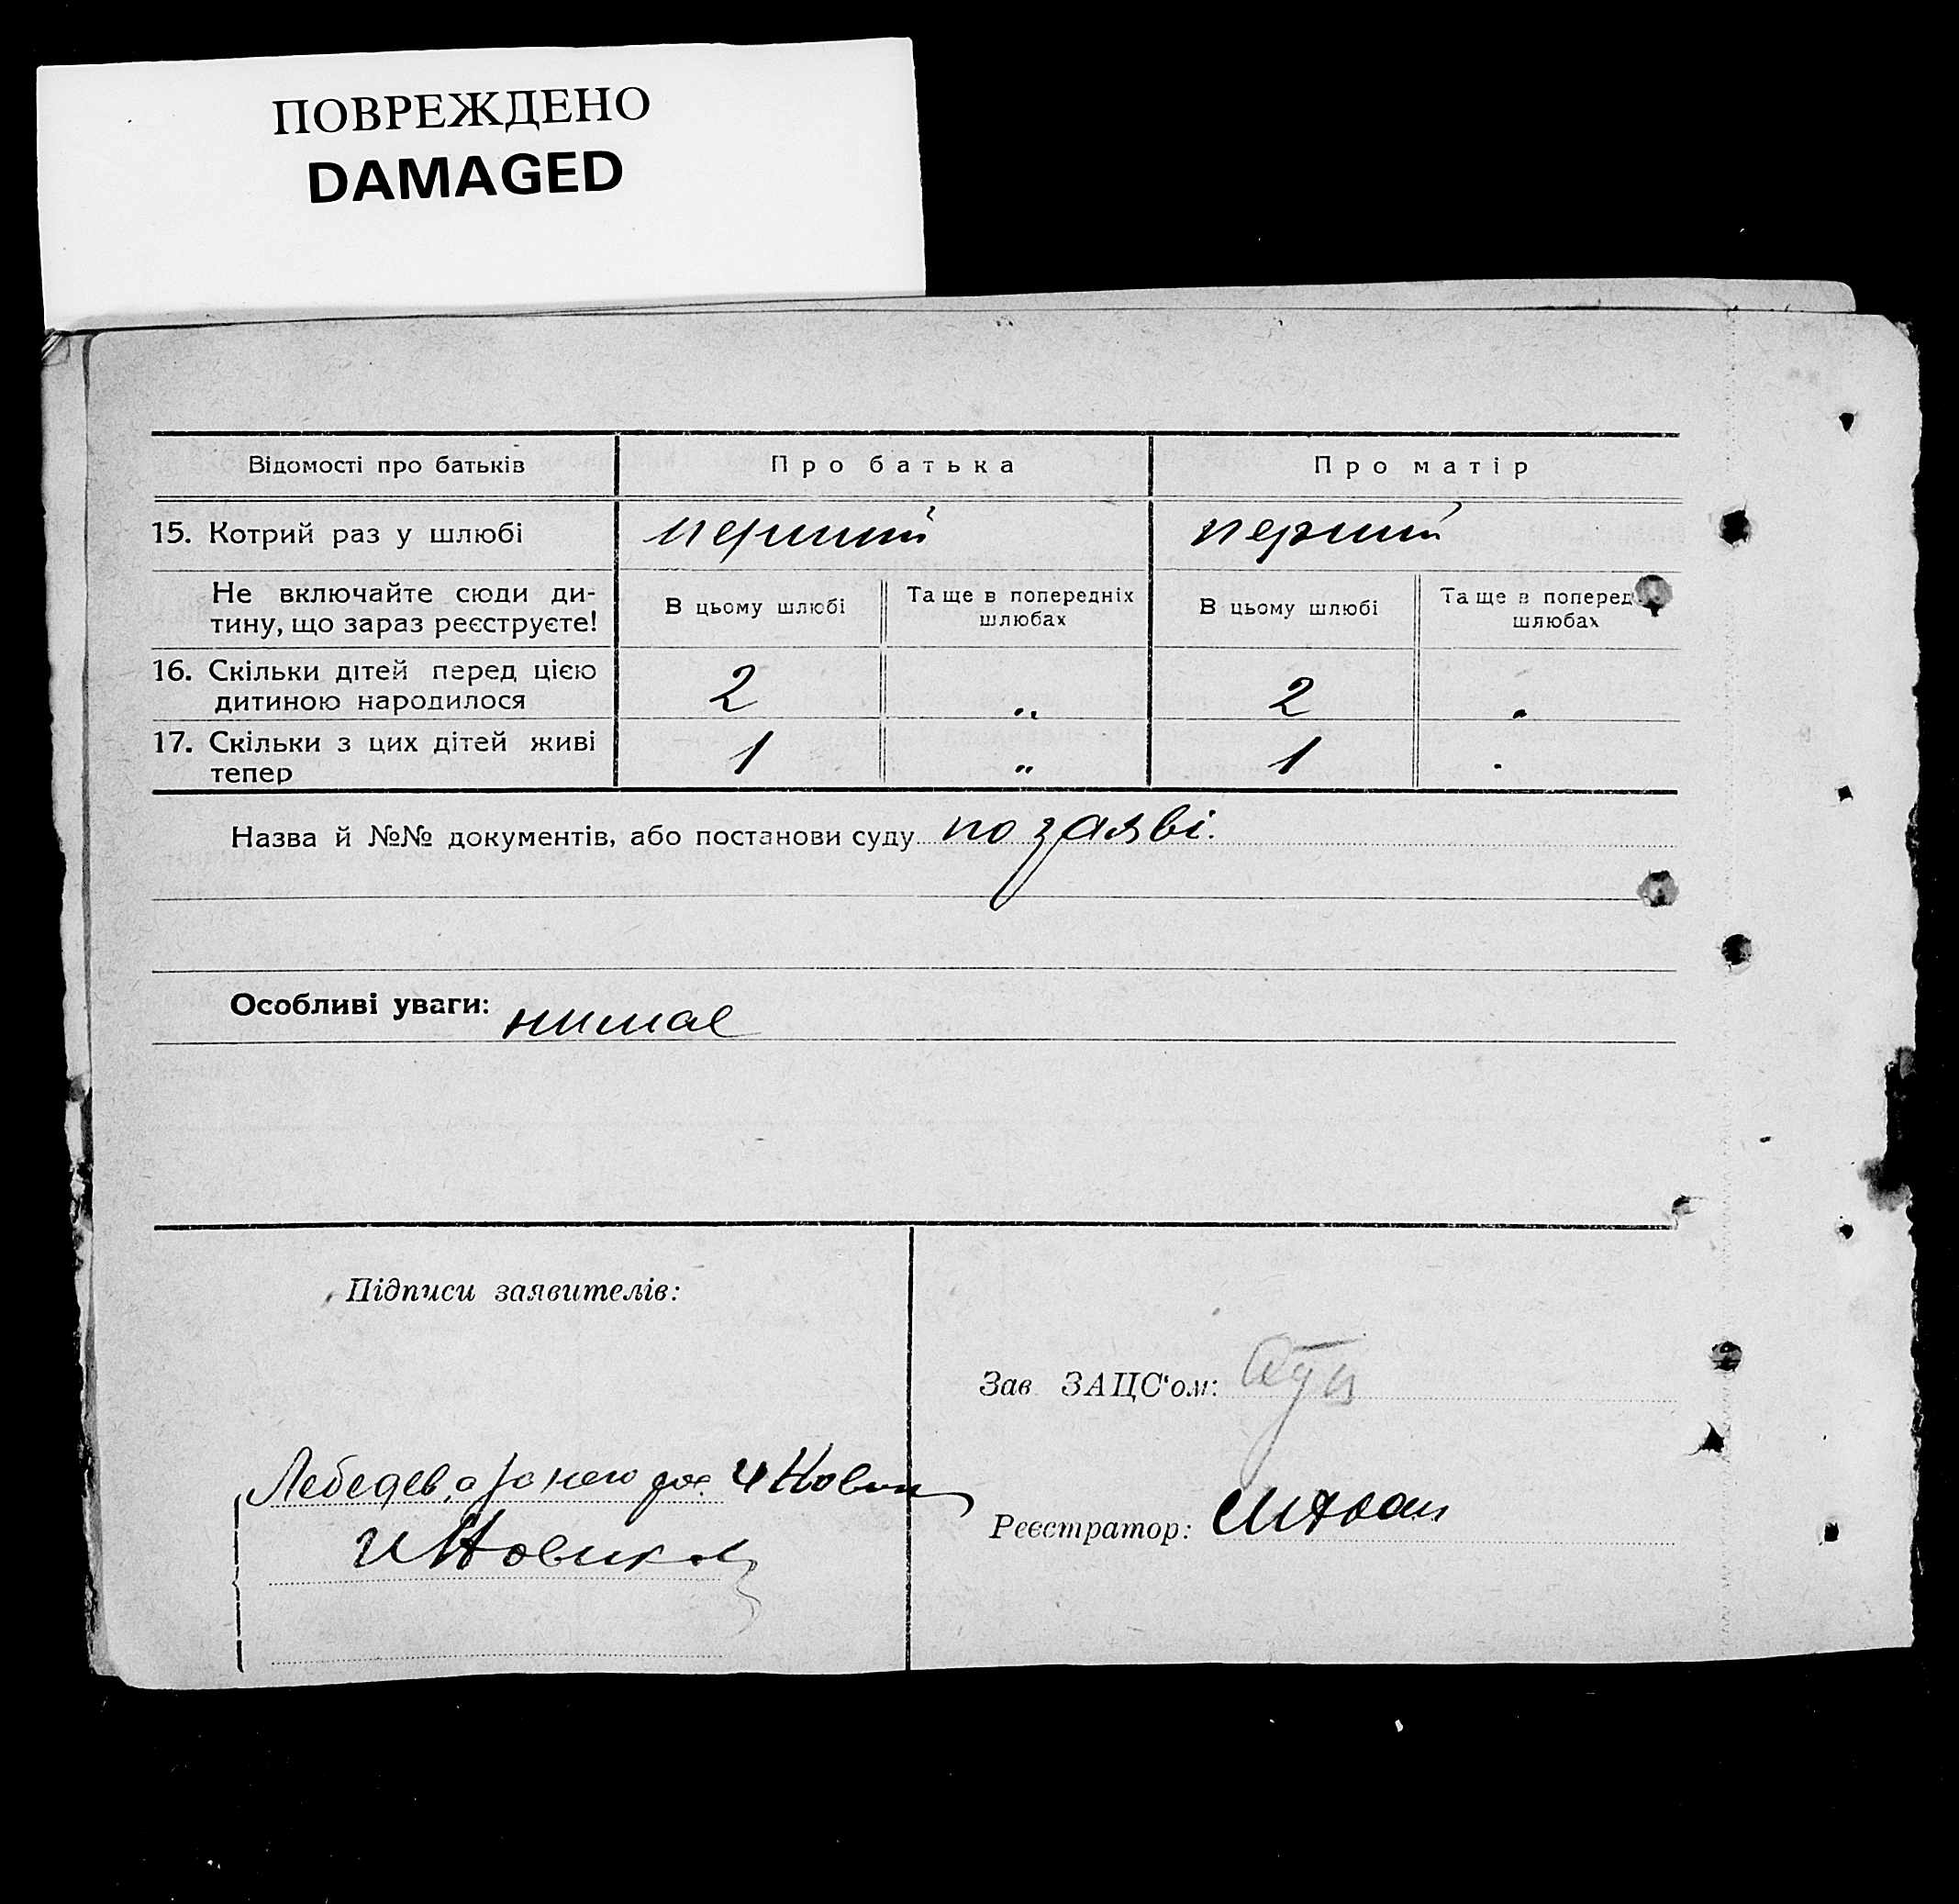 ПОВРЕЖДЕНО
DAMAGED
Відомості про батьків
Про батька
Про матір
15. Котрий раз у шлюбі перший перший
Не включайте сюди ди-
тину, що зараз реєструєте!
В цьому шлюбі
Та ще в попередніх
шлюбах
В цьому шлюбі
Та ще в поперед
шлюбах
16. Скільки дітей перед цією
дитиною народилося
2 „ 2
17. Скільки з цих дітей живі
тепер
1 „ 1
Назва й №№ документів, або постанови суду по заяві.
Особливі уваги: нимае
Підписи заявителів:
Зав ЗАЦС'ом:
Лебедев, а за него
Реєстратор: